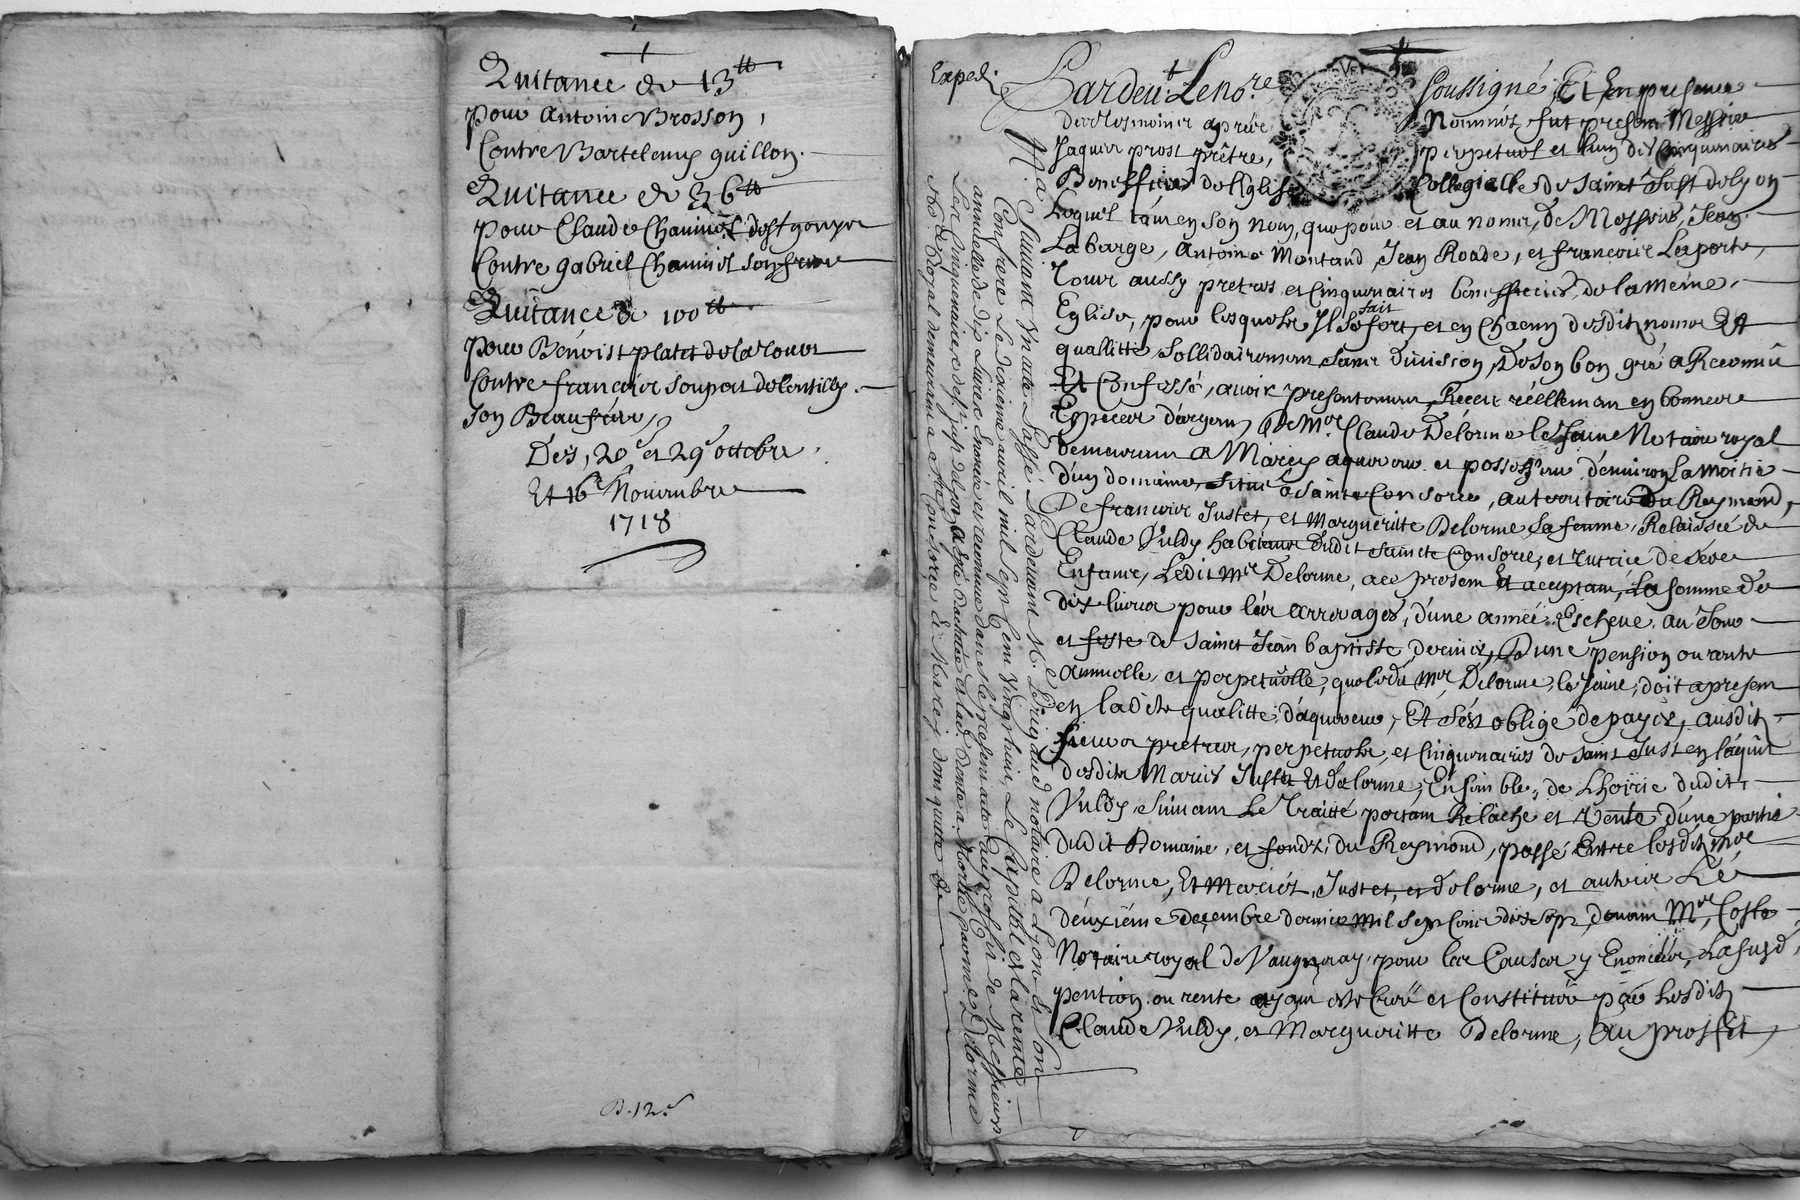 Quitance de 13tt
pour Antoine Brosson,
Contre Bartelemy guillon.
Quitance de 36tt
pour Claude Chaumiel
Contre gabriel Chaumiel son frere
Quitance de 100tt
pour Benoist platet de la
Contre francoise Soupat de lentilly
son Beaufrere
Des, 20e et 29e octobre
Et 16e Novembre
1718
B. 12.e
Exped.
Pardevt. Le no.re Soussigné Et En presence
des tesmoins apres Nommés, fut present Messire
Jaques prost prêtre, perpetuel et l'un des Cinquenaires
Beneffiers de l'Eglise Collegialle de Saint Just de Lyon
Lequel tant en son nom, que pour et au nom de Messires, Jean
Labarge, Antoine Montand, Jean Roade, et francois Laporte,
Tous aussy pretres et Cinquenaires beneffiers, de la meme
Eglise, pour lesquels Il se fait fort, et en Chacun desdits noms Et
quallitté sollidairement sans division, De son bon gré a Reconnu
Et Confessé, avoir presentement, Receu réellement en bonnes
Especes d'argent, De Mre. Claude Delorme le Jeune Notaire royal
demeurant a Marcy aquereur et possesseur d'environ La moitié
d'un domaine, situé a Sainte Consorce, au territoire Du Reymond,
De francois Justet, et Margueritte Delorme sa femme, Relaissée de
Claude Vuldy habitans dudit Saincte Consorce, et Tutrice de ses
Enfans, Ledit Mre Delorme, ace present Et aceptant, La somme de
dix livres pour les arrerages, d'une année Escheue au Jour
et feste de Sainct Jean baptiste dernier, D'une pension ou rente
Annuelle, et perpetuelle, que ledit Mre. Delorme, le Jeune, doit apresent
en ladite qualitté d'aquereur, Et s'est obligé de payer, ausdits
Sieurs pretres, perpetuels, et Cinquenaires de saint Just en l'aquit
desdits Mariés Justet et Delorme, Ensemble, de L'hoirie dudit
Vuldy suivant Le Traitté portant Relache et Vente d'une partie
dudit Domaine, et fondz, du Reymond, passé Entre lesdits Mre
Delorme, Et Mariés, Justet, et delorme, et autres Le
deuxiéme decembre dernier mil sept Cent dix sept, devant Mre. Coste
Notaire royal de Vaugneray, pour les Causes y Enoncées, Lasusd.
pention ou rente ayant esté Creé et Constituée par Lesdits
Claude Vuldy, et Margueritte Delorme, Au proffit
Suivant Un acte Passé Pardevant Me. Brigaud notaire a Lyon et son
Confrere Le dixieme avril mil sept Cent Vingt huit, Le Capital et la rente
annuelle de dix Livres Enoncée et Contenue dans le present acte au proffit de Messieurs
Les Cinquenaires de st. just de Lyon a Eté
Delorme
No.re Royal demeurant a Ste Consorce & Marcy dont quitte &